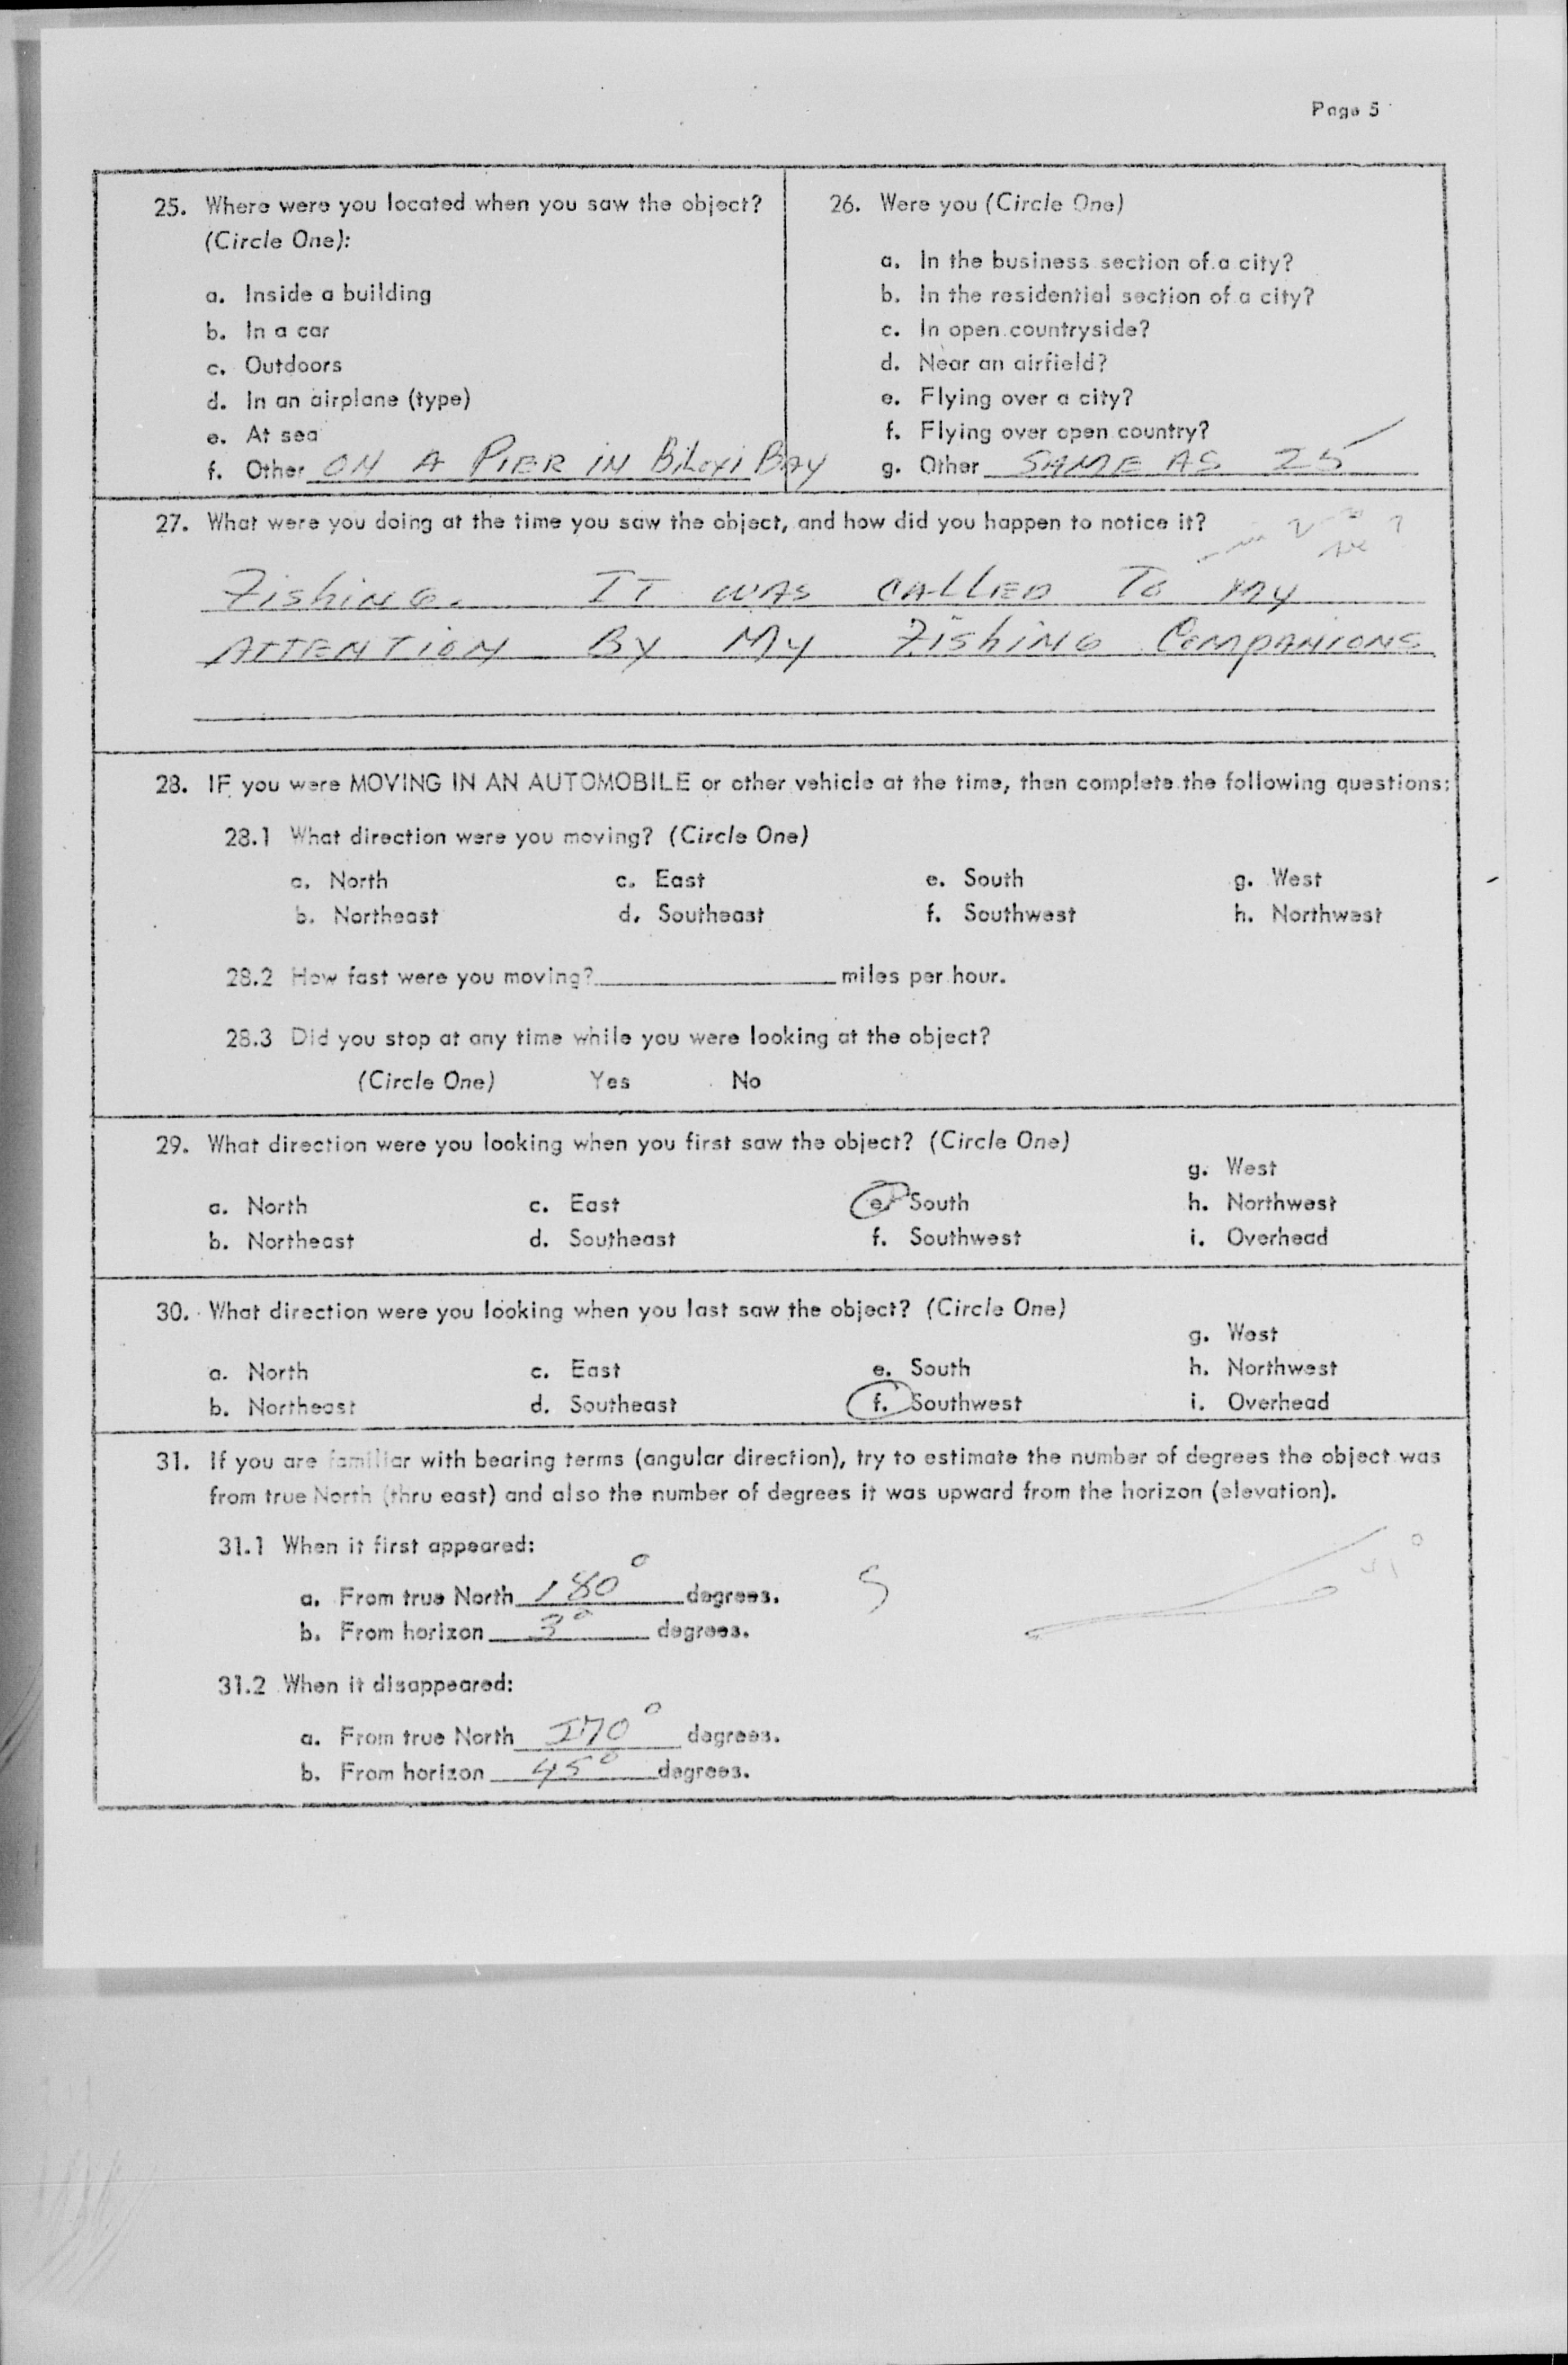 Page 5
25. Where were you located when you saw the object?
(Circle One):
a. Inside a building
b. In a car
c. Outdoors
d. In an airplane (type)
e. At sea
f. Other ON A PIER IN BiLoxi BAY
26. Were you (Circle One)
a. In the business section of a city?
b. In the residential section of a city?
c. In open countryside?
d. Near an airfield?
e. Flying over a city?
f. Flying over open country?
g. Other SAME AS 25
27. What were you doing at the time you saw the object, and how did you happen to notice it?
FishiNG. IT WAS CALLED To My
ATTENTION By My FishiNG COMPANIONS
28. IF you were MOVING IN AN AUTOMOBILE or other vehicle at the time, then complete the following questions:
28.1 What direction were you moving? (Circle One)
a. North c. East e. South g. West
b. Northeast d. Southeast f. Southwest h. Northwest
28.2 How fast were you moving? miles per hour.
28.3 Did you stop at any time while you were looking at the object?
(Circle One) Yes No
29. What direction were you looking when you first saw the object? (Circle One)
g. West
a. North c. East e. South h. Northwest
b. Northeast d. Southeast f. Southwest i. Overhead
30. What direction were you looking when you last saw the object? (Circle One)
g. West
a. North c. East e. South h. Northwest
b. Northeast d. Southeast f. Southwest i. Overhead
31. If you are familiar with bearing terms (angular direction), try to estimate the number of degrees the object was
from true North (thru east) and also the number of degrees it was upward from the horizon (elevation).
31.1 When it first appeared:
a. From true North 180° degrees. S
b. From horizon 3° degrees.
31.2 When it disappeared:
a. From true North 270° degrees.
b. From horizon 45° degrees.